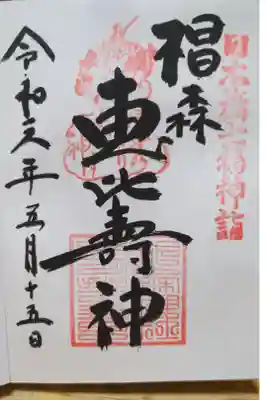 日本橋七福神詣
椙森
恵比壽神
令和元年五月十五日